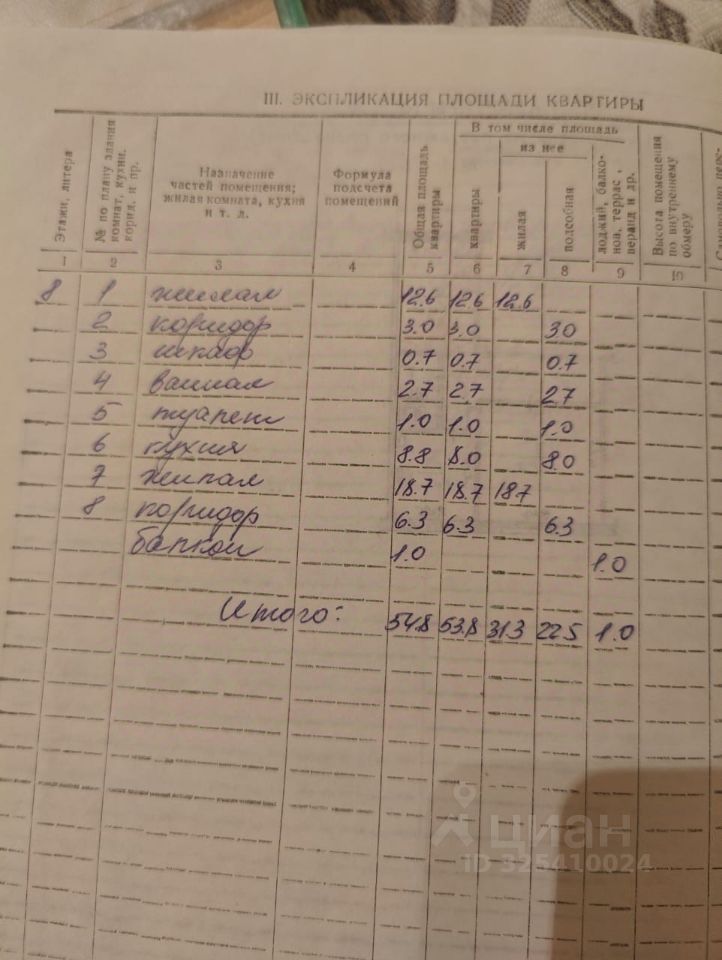 III. ЭКСПЛИКАЦИЯ ПЛОЩАДИ КВАРТИРЫ
Этажи, литера
№ по плану здания комнат, кухни, корид. и пр.
Назначение частей помещения; жилая комната, кухня и т. д.
Формула подсчета помещений
Общая площадь квартиры
В том числе площадь
из нее
квартиры
жилая
подсобная
лоджий, балконов, террас, веранд и др.
Высота помещения по внутреннему обмеру
1 2 3 4 5 6 7 8 9 10
8 1 жилая 12.6 12.6 12.6
2 коридор 3.0 3.0 3.0
3 шкаф 0.7 0.7 0.7
4 ванная 2.7 2.7 2.7
5 туалет 1.0 1.0 1.0
6 кухня 8.8 8.0 8.0
7 жилая 18.7 18.7 18.7
8 коридор 6.3 6.3 6.3
балкон 1.0 1.0
Итого: 54.8 53.8 31.3 22.5 1.0
циан
ID 325410024